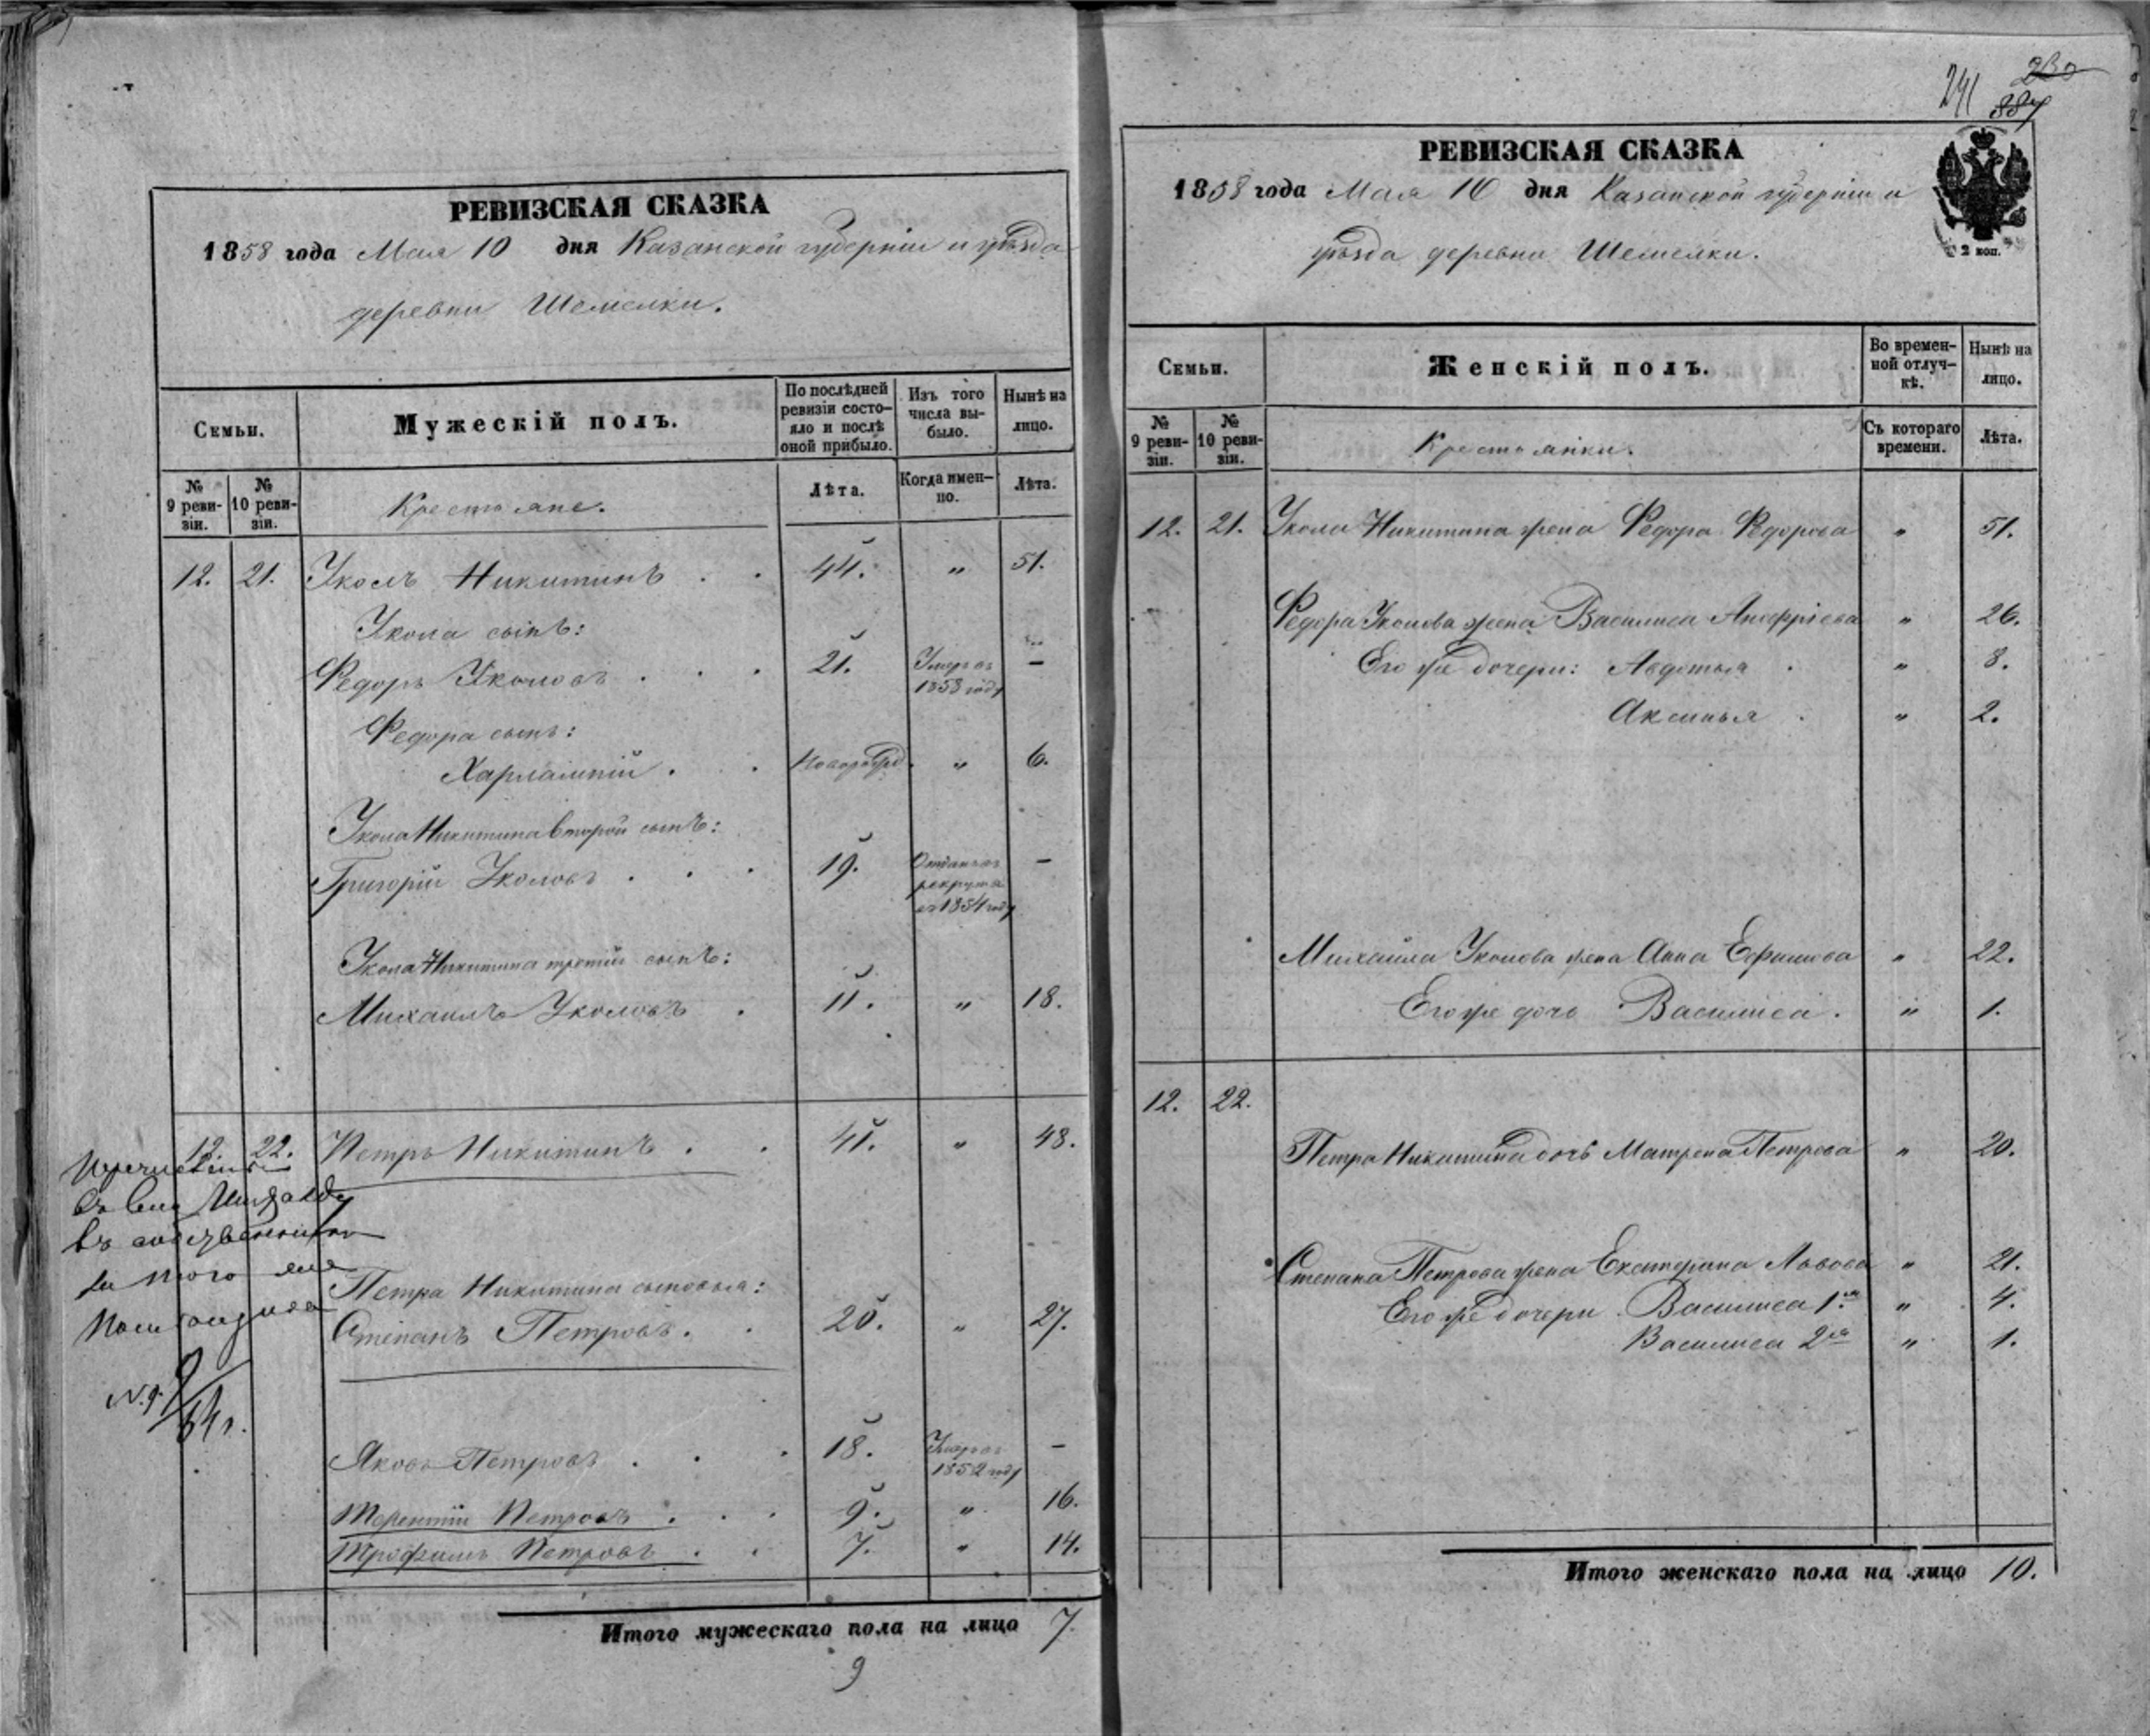 РЕВИЗСКАЯ СКАЗКА
1858 года Мая 10 дня Казанской губерніи и уѣзда
деревни Шемелки.
Семьи.
Мужескій полъ.
По послѣдней ревизіи состояло и послѣ оной прибыло.
Изъ того числа выбыло.
Нынѣ на лицо.
№ 9 ревизіи.
№ 10 ревизіи.
Крестьяне.
Лѣта.
Когда именно.
Лѣта.
12. 21. Уколъ Никитинъ . . 44. " 51.
Укола сынъ:
Федоръ Уколовъ . . . 21. Умеръ въ 1858 году –
Федора сынъ:
Харлампій . . Новорожд. " 6.
Укола Никитина второй сынъ:
Григорій Уколовъ . . . 19. Отданъ въ рекрута въ 1854 году –
Укола Никитина третій сынъ:
Михаилъ Уколовъ . 11. " 18.
12. 22. Петръ Никитинъ . . 41. " 48.
Перечислены
въ
въ
того же
Петра Никитина сыновья:
Степанъ Петровъ . . 20. " 27.
№ 9
Яковъ Петровъ . . . 18. Умеръ въ 1852 году –
Терентій Петровъ . . . 9. " 16.
Трофимъ Петровъ . . 7. " 14.
Итого мужескаго пола на лицо 7
9
241 230
387
РЕВИЗСКАЯ СКАЗКА
1858 года Мая 10 дня Казанской губерніи и
уѣзда деревни Шемелки.
2 коп.
Семьи.
Женскій полъ.
Во временной отлучкѣ.
Нынѣ на лицо.
№ 9 ревизіи.
№ 10 ревизіи.
Крестьянки.
Съ котораго времени.
Лѣта.
12. 21. Укола Никитина жена Федора Федорова " 51.
Федора Уколова жена Василиса Андреева " 26.
Его же дочери: Авдотья . " 8.
Аксинья . " 2.
Михайла Уколова жена Анна Ефимова " 22.
Его же дочь Василиса . " 1.
12. 22.
Петра Никитина дочь Матрена Петрова " 20.
Степана Петрова жена Екатерина Львова " 21.
Его же дочери Василиса 1я " 4.
Василиса 2я " 1.
Итого женскаго пола на лицо 10.